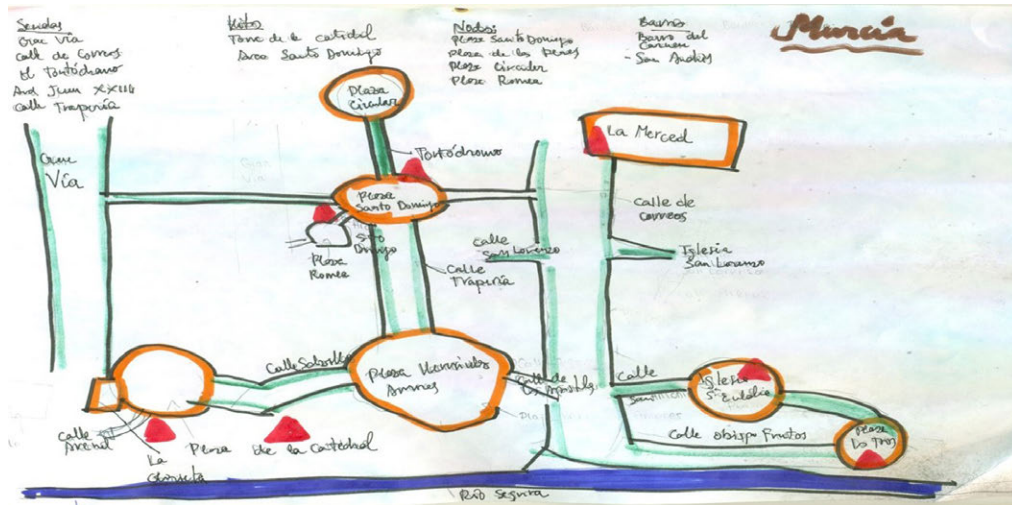 Sendas
Gran Vía
Calle de Correos
el Tontódromo
Avd Juan XXIII
Calle Trapería
Hitos
Torre de la catedral
Arco Santo Domingo
Nodos:
Plaza Santo Domingo
Plaza de las
Plaza Circular
Plaza Romea
Barrios
Barrio del
Carmen
- San Andrés
Murcia
Plaza
Circular
La Merced
Gran
Vía
Tontódromo
Plaza
Santo Domingo
Calle de
correos
Sto
Domingo
Plaza
Romea
Calle
San Lorenzo
Iglesia
San Lorenzo
Calle
Trapería
Calle
Plaza
Calle de
Calle
San
Iglesia
Sta Eulalia
Plaza
Calle obispo Frutos
Calle
La
Plaza de la Catedral
Río Segura